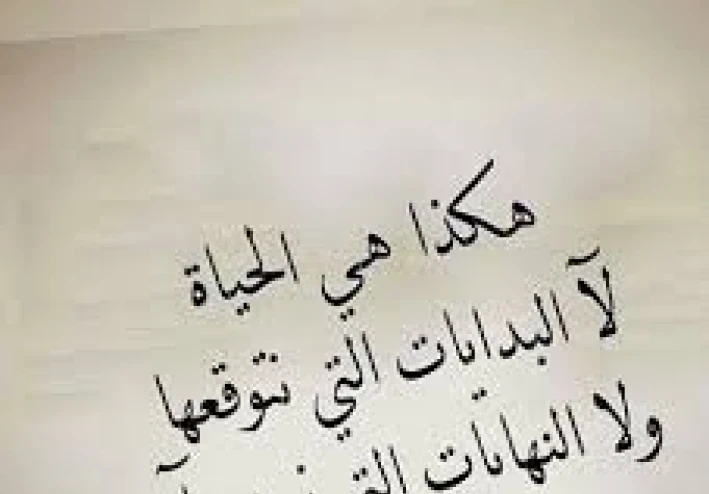 هكذا هي الحياة
لآ البدايات التي نتوقعها
ولا النهايات التي